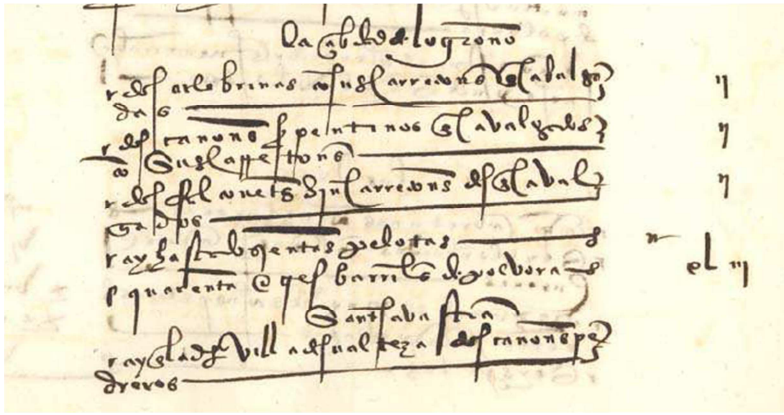 la cibdad de logroño
dos culebrinas con sus carretones encavalga ij
das
dos cañones serpentinos encavalgados ij
con sus carretones
dos falconetes con sus carretones desencaval ij
gados
ay hasta dozientas pelotas
quarenta e tres barriles de polvora xl iij
Sant savastian
ay en la dicha villa de su alteza dos cañones pe
dreros